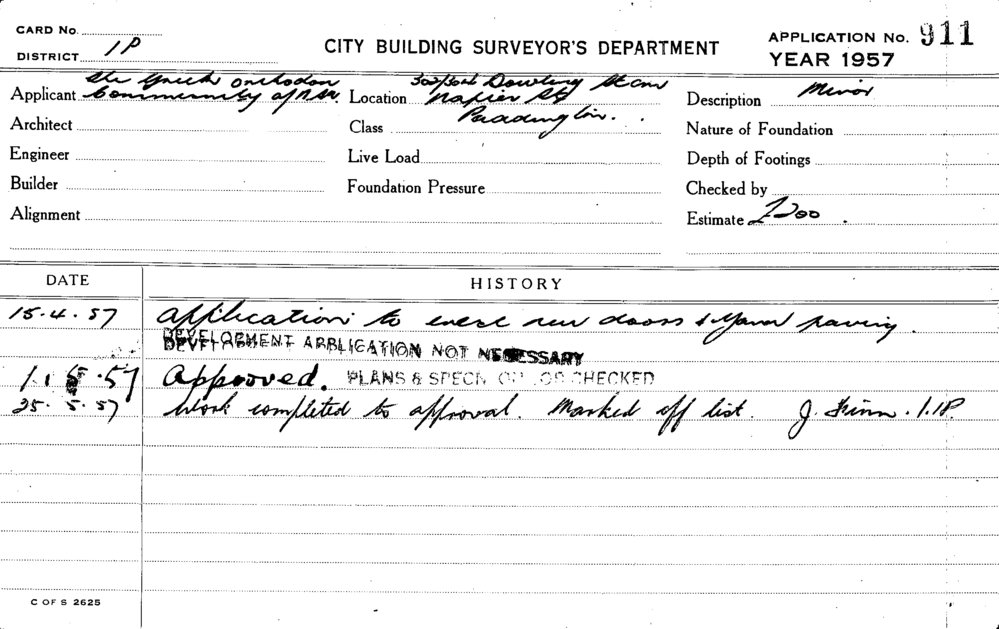 CARD No.
DISTRICT 1P
CITY BUILDING SURVEYOR'S DEPARTMENT
APPLICATION No. 911
YEAR 1957
Applicant The Greek Orthodox
Community of N.S.W.
Location 302/304 Dowling St cnr
Napier St
Paddington.
Description Minor
Architect
Class
Nature of Foundation
Engineer
Live Load
Depth of Footings
Builder
Foundation Pressure
Checked by
Alignment
Estimate £200
DATE HISTORY
15.4.57 Application to erect new doors & yard paving.
DEVELOPMENT APPLICATION NOT NECESSARY
1.5.57 Approved. PLANS & SPECN CHECKED
25.5.57 Work completed to approval. Marked off list. J. 1.1P.
C OF S 2625